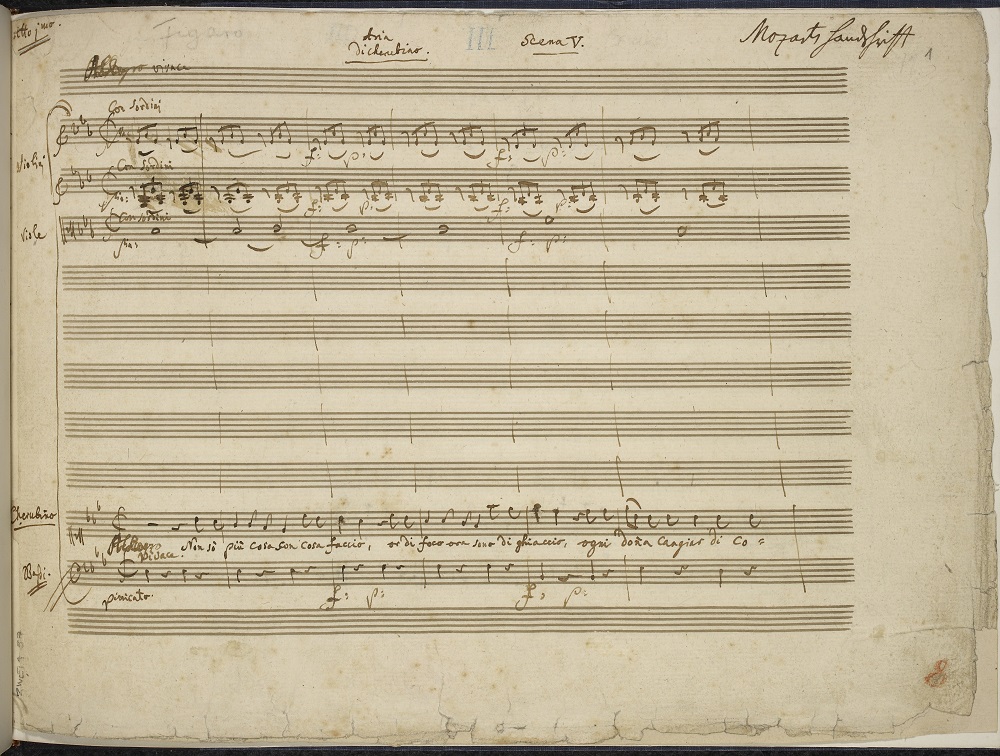 Atto jmo.
Figaro
Aria
Di cherubino.
III
Scena V.
Mozarts Handschrifft
1
Allegro vivace
Con Sordini
Violini
f: p: f: p:
Con Sordini
f: p: f: p:
Con Sordini
Viole
f: p: f: p:
Cherubino
Non sò più cosa son cosa faccio, or di foco ora sono di ghiaccio, ogni doña Cangiar di Co =
Allegro
vivace.
Bassi.
pizzicato. f: p: f: p:
8